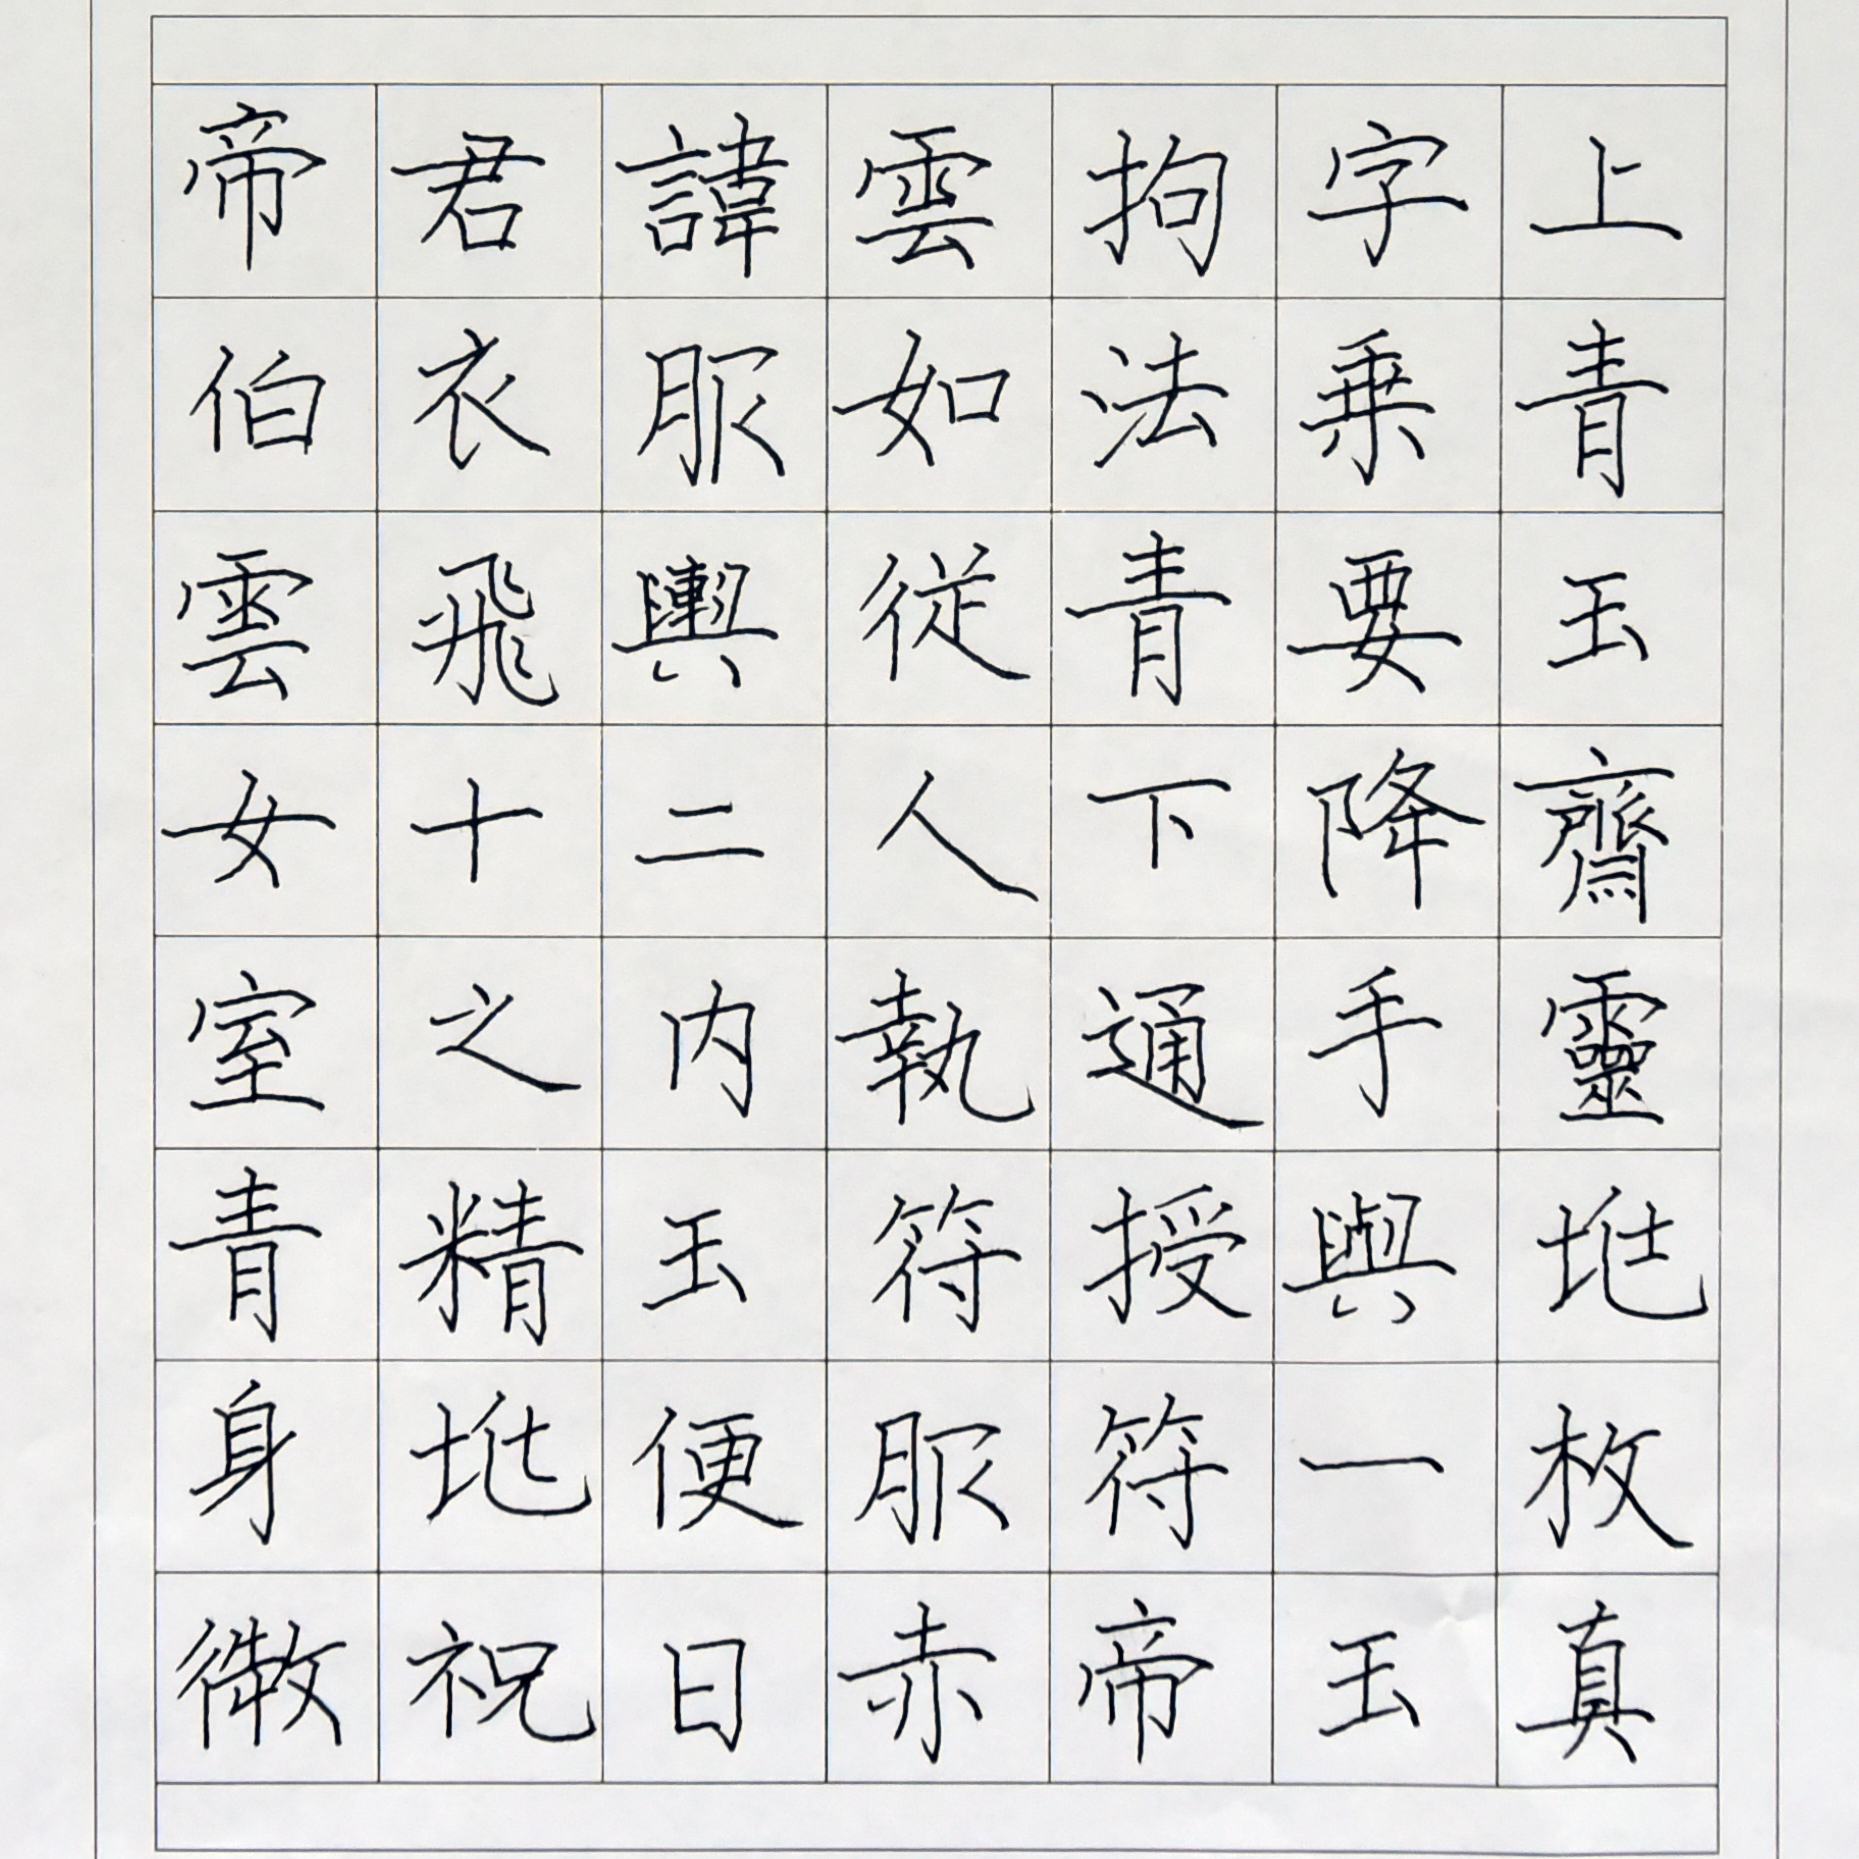 帝君諱雲拘字上
伯衣服如法乗青
雲飛輿従青要玉
女十二人下降齋
室之内執通手靈
青精玉符授與兆
身兆便服符一枚
微祝曰赤帝玉真